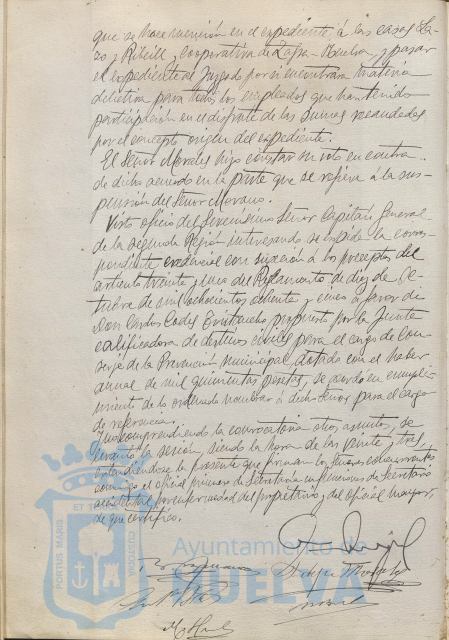 que se hace mención en el expediente, á las casas La-
zo y Riveill, cooperativa de Zafra-Huelva, y pasar
el expediente al Juzgado por si encontrara materia
delictiva para todos los empleados que han tenido
participación en el disfrute de las sumas recaudadas
por el concepto origen del expediente.
El Señor Morales hizo constar su voto en contra
de dicho acuerdo en la parte que se refiere á la sus-
pensión del Señor Morano.
Visto oficio del Excelentísimo Señor Capitán General
de la segunda Región interesando se expida la corres-
pondiente credencial con sujeción á los preceptos del
artículo treinta y uno del Reglamento de diez de Oc-
tubre de mil ochocientos ochenta y cinco á favor de
Don Carlos Codes propuesto por la Junta
calificadora de destinos civiles para el cargo de Con-
serje de la Prevención municipal, dotado con el haber
anual de mil quinientas pesetas, se acordó en cumpli-
miento de lo ordenado nombrar á dicho Señor para el cargo
de referencia.
Y no comprendiendo la convocatoria otros asuntos, se
levantó la sesión, siendo la hora de las veinte y tres,
extendiéndose la presente que firman los Señores concurrentes
conmigo el oficial primero de Secretaría en funciones de Secretario
accidental por enfermedad del propietario y del oficial mayor,
de que certifico.
PORTUS MARIS ET TERRAE CUSTODIA
Ayuntamiento de
HUELVA